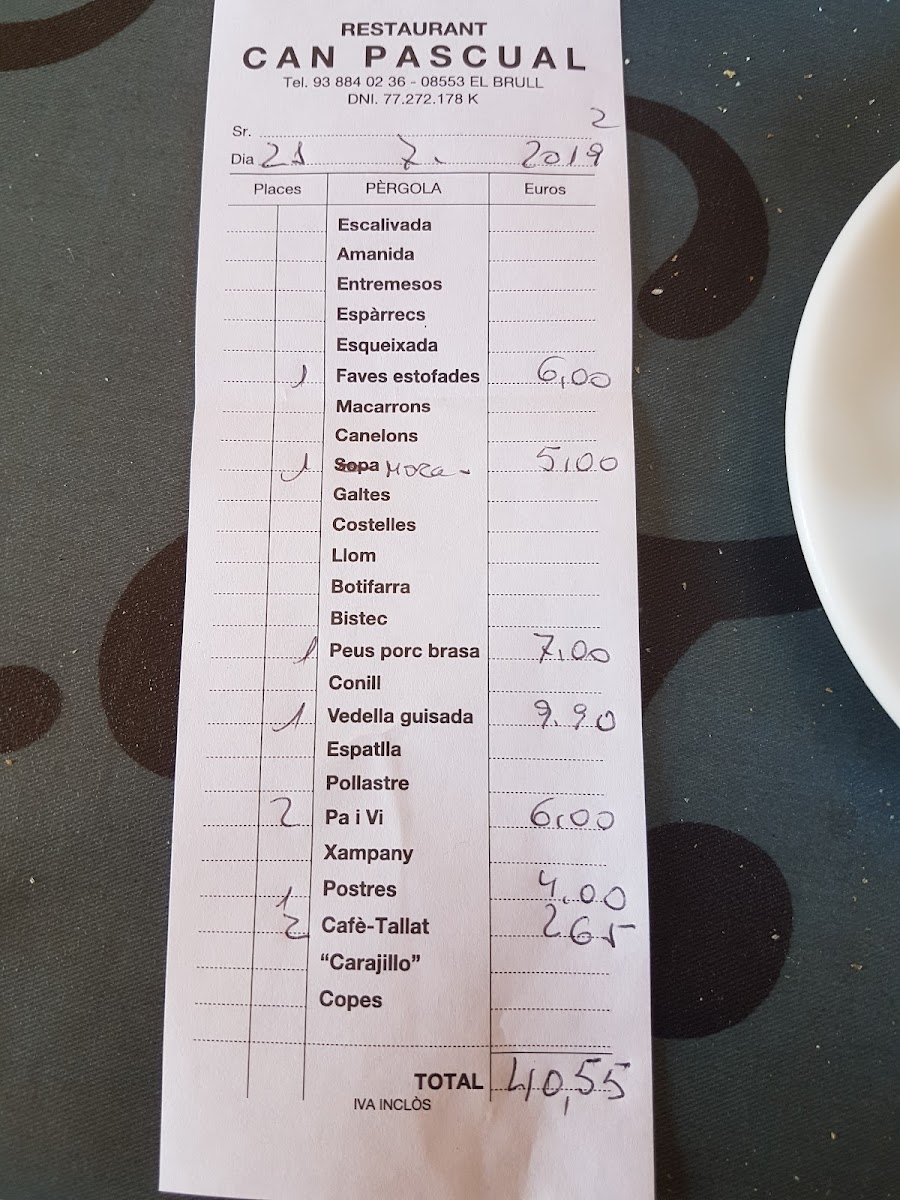 RESTAURANT
CAN PASCUAL
Tel. 93 884 02 36 - 08553 EL BRULL
DNI. 77.272.178 K
Sr. 2
Dia 21 7. 2019
Places PÈRGOLA Euros
Escalivada
Amanida
Entremesos
Espàrrecs
Esqueixada
1 Faves estofades 6,00
Macarrons
Canelons
1 Sopa 5,00
Galtes
Costelles
Llom
Botifarra
Bistec
1 Peus porc brasa 7,00
Conill
1 Vedella guisada 9.90
Espatlla
Pollastre
2 Pa i Vi 6,00
Xampany
1 Postres 4.00
2 Cafè-Tallat 265
“Carajillo”
Copes
TOTAL 40,55
IVA INCLÒS